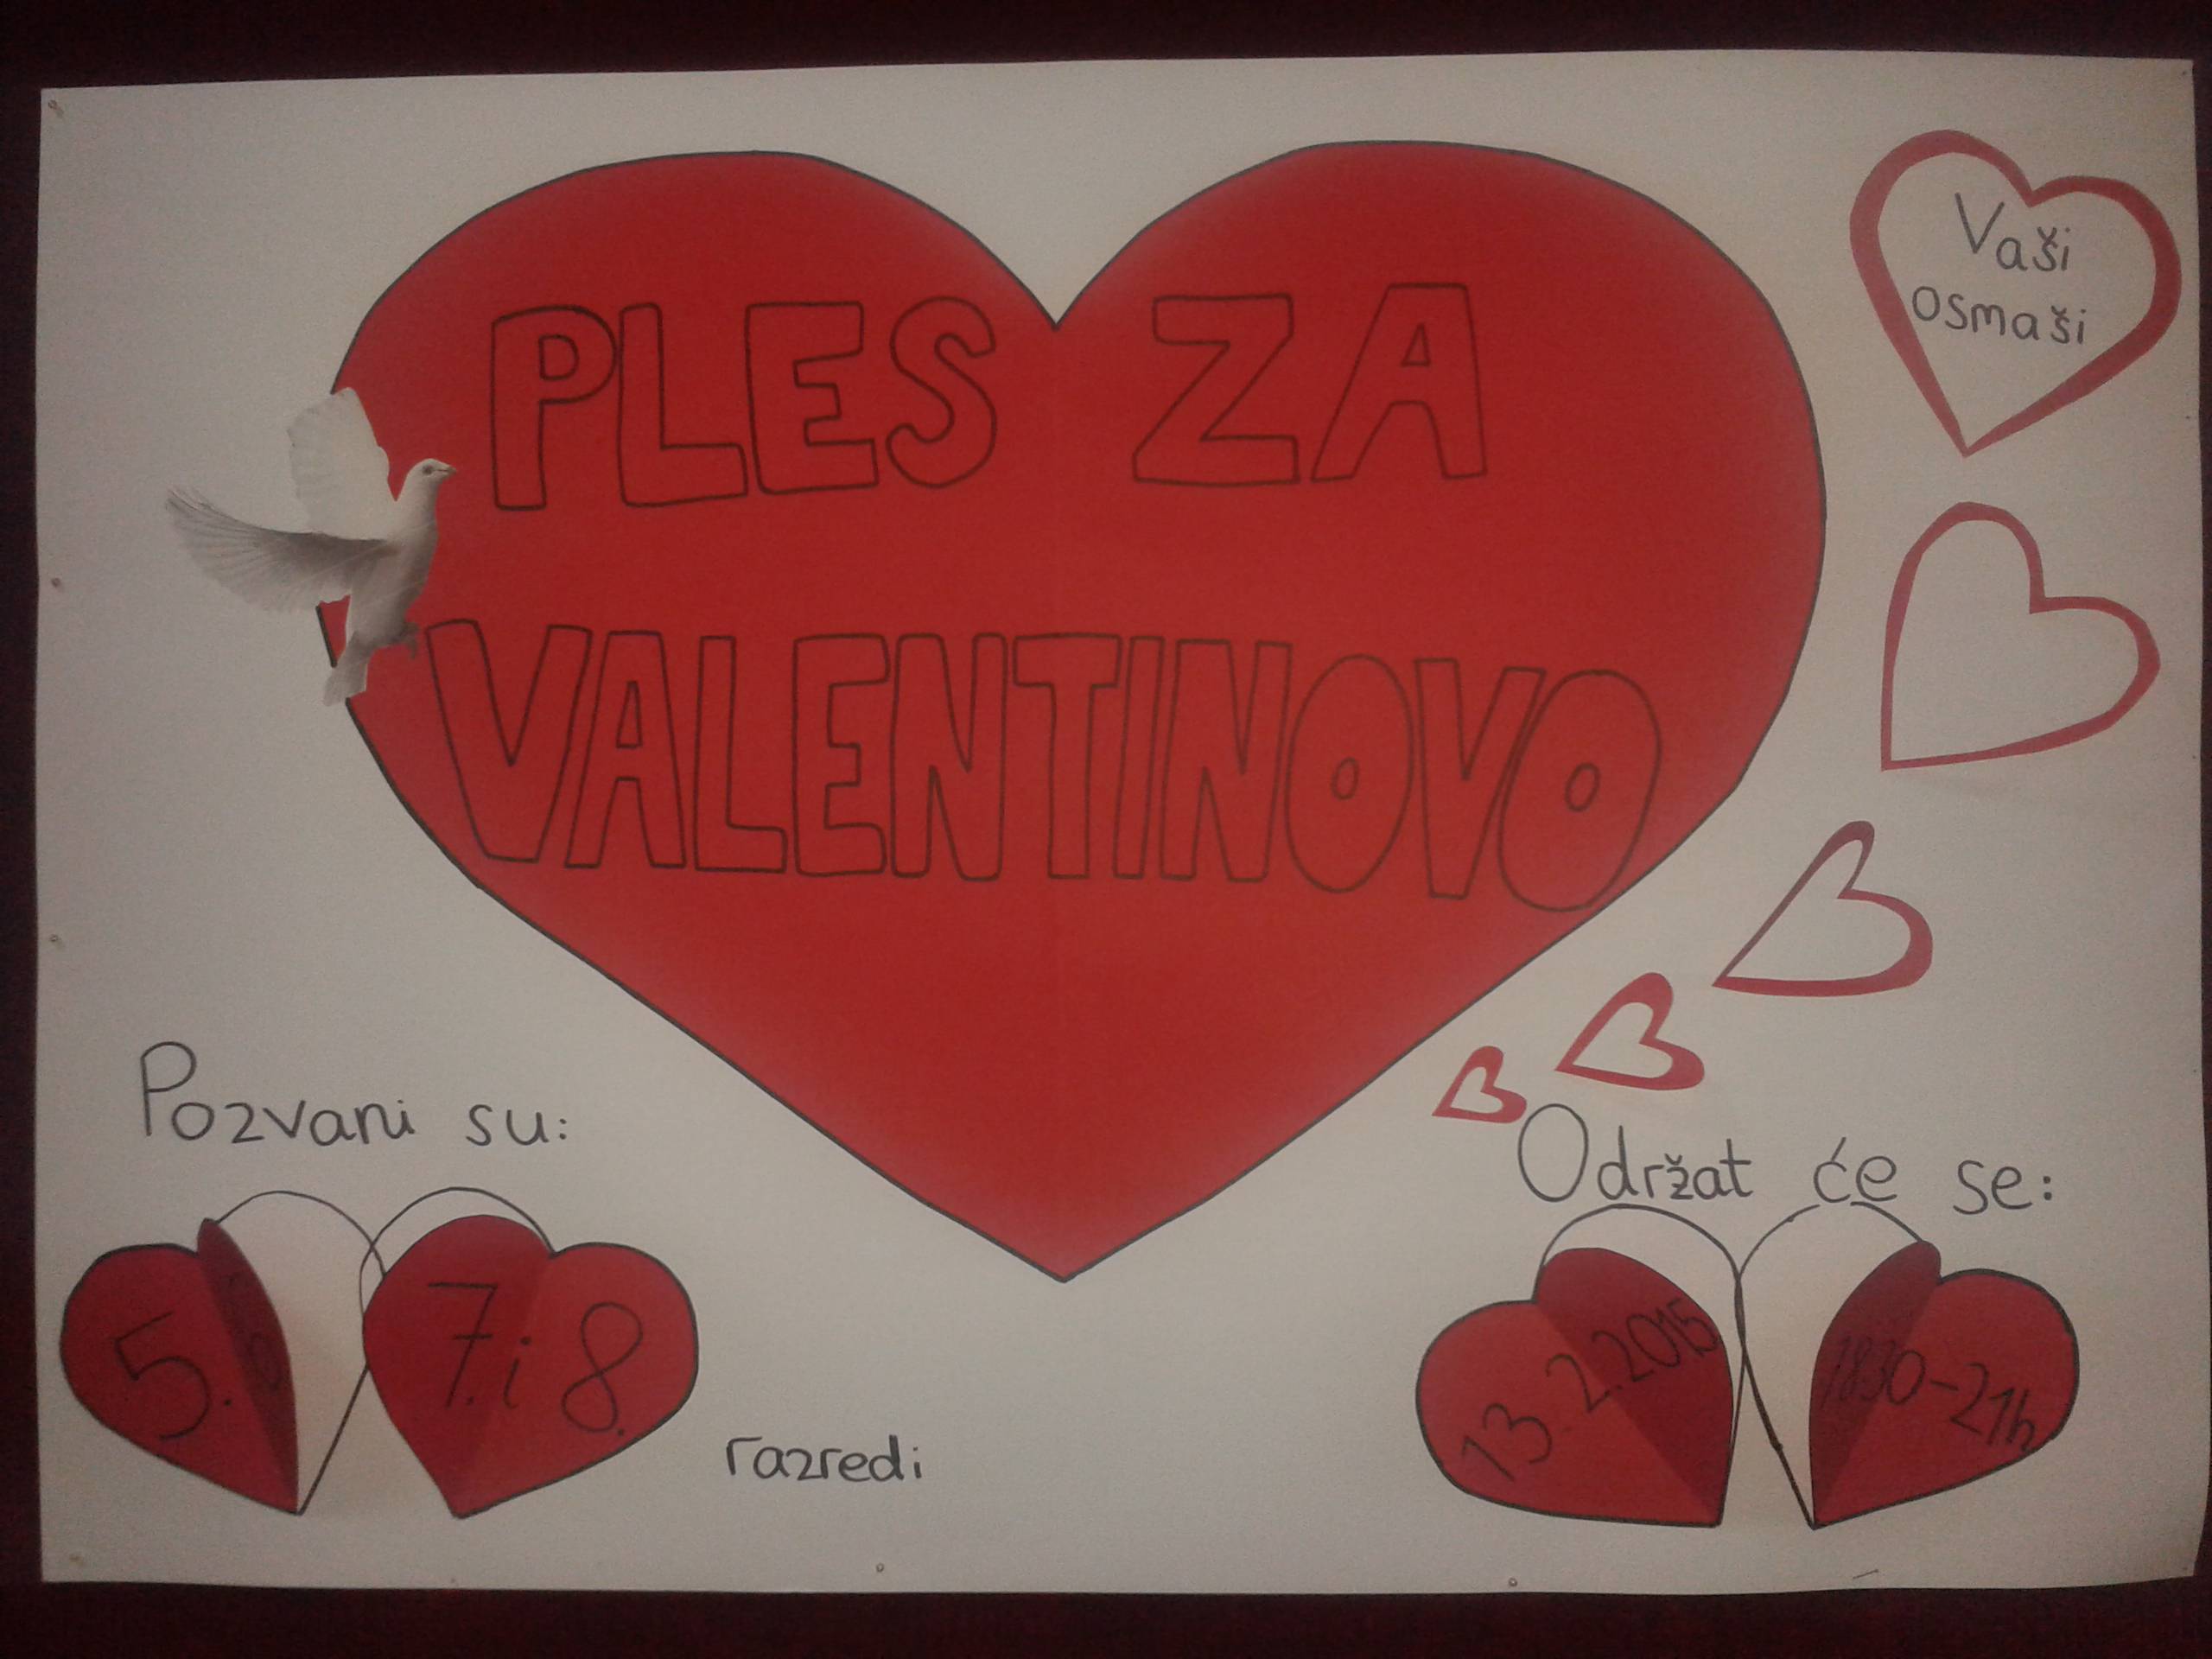 PLES ZA
VALENTINOVO
Vaši
osmaši
Pozvani su:
5.
7. i 8.
razredi
Održat će se:
13.2.2015
1830-21h